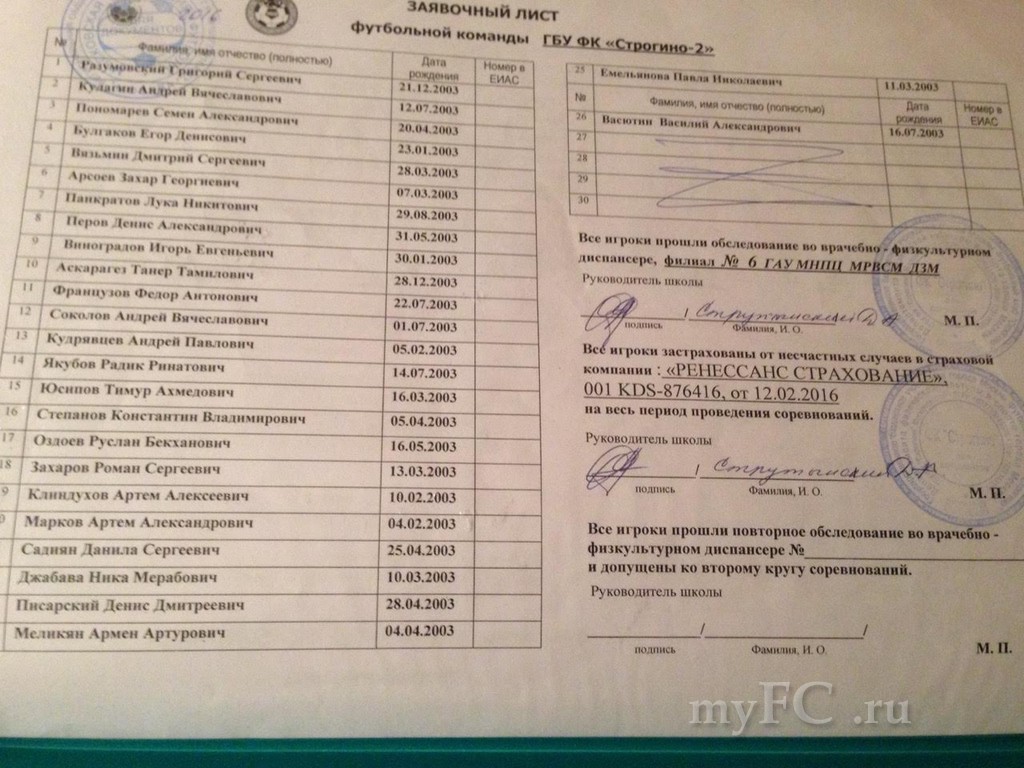 2016
ДОКУМЕНТОВ
ЗАЯВОЧНЫЙ ЛИСТ
футбольной команды ГБУ ФК «Строгино-2»
№ Фамилия, имя отчество (полностью) Дата рождения Номер в ЕИАС
1 Разумовский Григорий Сергеевич 21.12.2003
2 Кулагин Андрей Вячеславович 12.07.2003
3 Пономарев Семен Александрович 20.04.2003
4 Булгаков Егор Денисович 23.01.2003
5 Вязьмин Дмитрий Сергеевич 28.03.2003
6 Арсоев Захар Георгиевич 07.03.2003
7 Панкратов Лука Никитович 29.08.2003
8 Перов Денис Александрович 31.05.2003
9 Виноградов Игорь Евгеньевич 30.01.2003
10 Аскарагез Танер Тамилович 28.12.2003
11 Французов Федор Антонович 22.07.2003
12 Соколов Андрей Вячеславович 01.07.2003
13 Кудрявцев Андрей Павлович 05.02.2003
14 Якубов Радик Ринатович 14.07.2003
15 Юсипов Тимур Ахмедович 16.03.2003
16 Степанов Константин Владимирович 05.04.2003
17 Оздоев Руслан Бекханович 16.05.2003
18 Захаров Роман Сергеевич 13.03.2003
9 Клиндухов Артем Алексеевич 10.02.2003
0 Марков Артем Александрович 04.02.2003
Садиян Данила Сергеевич 25.04.2003
Джабава Ника Мерабович 10.03.2003
Писарский Денис Дмитреевич 28.04.2003
Меликян Армен Артурович 04.04.2003
25 Емельянова Павла Николаевич 11.03.2003
№ Фамилия, имя отчество (полностью) Дата рождения Номер в ЕИАС
26 Васютин Василий Александрович 16.07.2003
27
28
29
30
Все игроки прошли обследование во врачебно - физкультурном
диспансере, филиал № 6 ГАУ МНПЦ МРВСМ ДЗМ
Руководитель школы
/
подпись Фамилия, И. О. М. П.
Все игроки застрахованы от несчастных случаев в страховой
компании : «РЕНЕССАНС СТРАХОВАНИЕ»,
001 KDS-876416, от 12.02.2016
на весь период проведения соревнований.
Руководитель школы
/
подпись Фамилия, И. О. М. П.
Все игроки прошли повторное обследование во врачебно -
физкультурном диспансере №
и допущены ко второму кругу соревнований.
Руководитель школы
/ /
подпись Фамилия, И. О. М. П.
myFC .ru